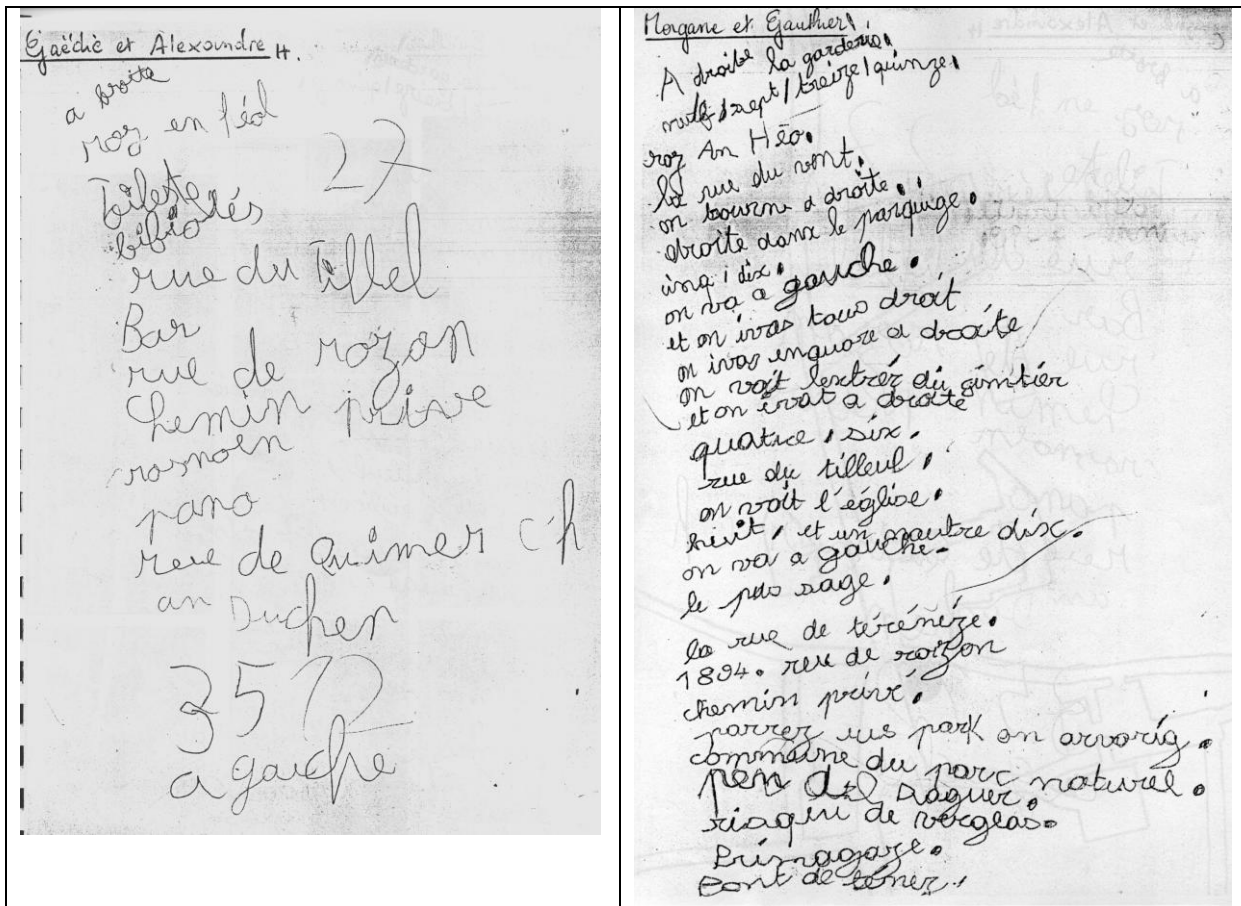 Gaëdic et Alexandre H.
a broite
roz en féol
27
Toilette
biblo tés
rue du Tillel
Bar
rue de rozan
Chemin prive
rosnoen
pano
rue de Quimer c'h
an Duchen
3512
a gauche
Morgane et Gauthier.
A droite la garderie.
neuf / sept / treize / quinze.
roz An Héo.
la rue du vont.
on tourne a droite.
droite danx le parquinge.
cinq / dix.
on va a gauche.
et on ivas tous droit
on ivas enguore a droite
on voit lentrér du cimtier
et on ivat a droite
quatre / six.
rue du tilleul.
on voit l'église.
huit / et un nautre dix.
on va a gauche.
le pas sage.
la rue de térénéze.
1894. rue de roizon
chemin privé.
parrez rus park an arvorig.
commune du parc naturel.
pen d
riaque de verglas.
Primagaze.
Pont de